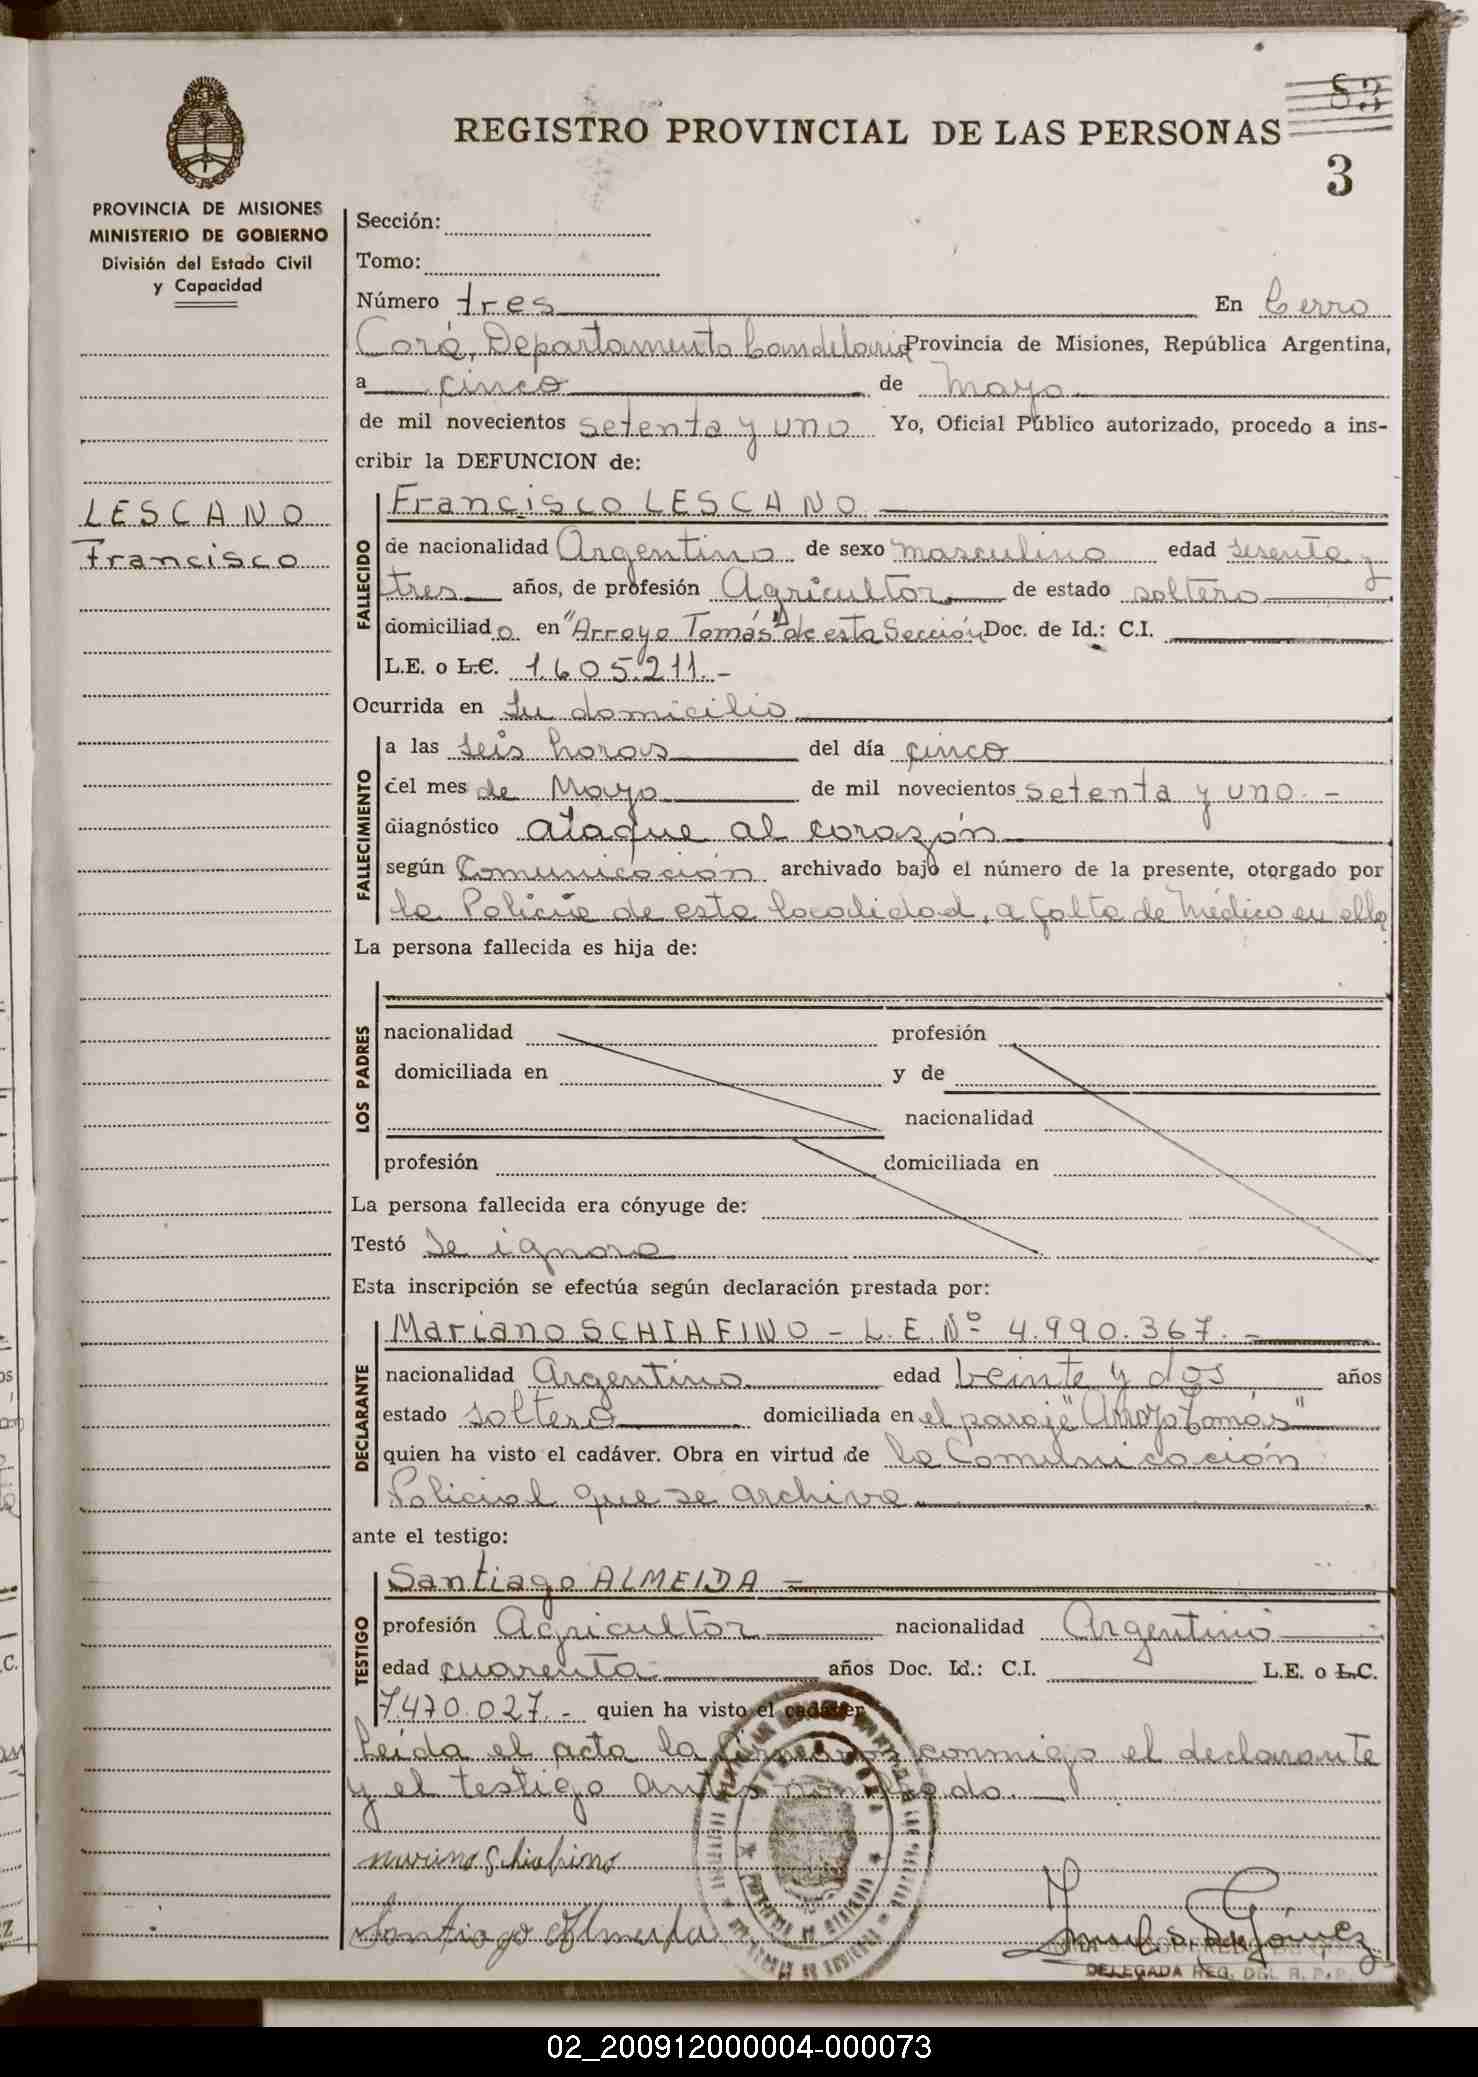 83
REGISTRO PROVINCIAL DE LAS PERSONAS
3
PROVINCIA DE MISIONES
MINISTERIO DE GOBIERNO
División del Estado Civil
y Capacidad
LESCANO
Francisco
Sección:
Tomo:
Número tres En Cerro
Corá, Departamento Candelaria Provincia de Misiones, República Argentina,
a cinco de Mayo
de mil novecientos setenta y uno Yo, Oficial Público autorizado, procedo a ins-
cribir la DEFUNCION de:
FALLECIDO
Francisco LESCANO
de nacionalidad Argentino de sexo masculino edad sesenta y
tres años, de profesión Agricultor de estado soltero
domiciliado en "Arroyo Tomás" de esta Sección Doc. de Id.: C.I.
L.E. o L.C. 1.605.211.-
Ocurrida en su domicilio
FALLECIMIENTO
a las seis horas del día cinco
del mes de Mayo de mil novecientos setenta y uno. -
diagnóstico ataque al corazón
según Comunicación archivado bajo el número de la presente, otorgado por
la Policía de esta localidad, a falta de Médico en ella
La persona fallecida es hija de:
LOS PADRES
nacionalidad profesión
domiciliada en y de
nacionalidad
profesión domiciliada en
La persona fallecida era cónyuge de:
Testó Se ignora
Esta inscripción se efectúa según declaración prestada por:
DECLARANTE
Mariano SCHIAFINO - L.E. Nº 4.990.367. -
nacionalidad Argentino edad Veinte y dos años
estado soltero domiciliada en el paraje "Arroyo Tomás"
quien ha visto el cadáver. Obra en virtud de la Comunicación
Policial que se archiva
ante el testigo:
TESTIGO
Santiago ALMEIDA -
profesión Agricultor nacionalidad Argentino
edad cuarenta años Doc. Id.: C.I. L.E. o L.C.
7470.027. - quien ha visto el cadáver
Leida el acta la firmaron conmigo el declarante
y el testigo antes nombrado.
Santiago Almeida
DELEGADA REG. DEL R. P. P.
02_200912000004-000073